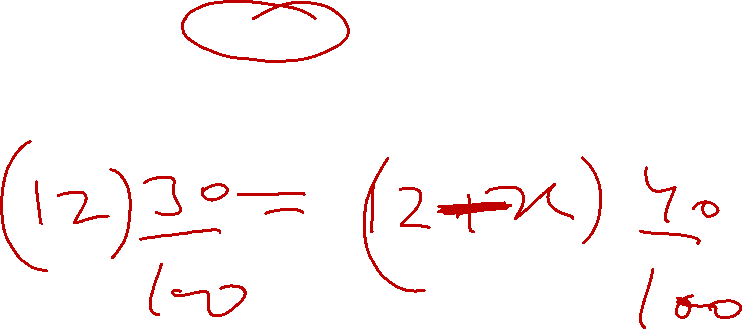 (12) 30/100 = (12 - x) 40/100